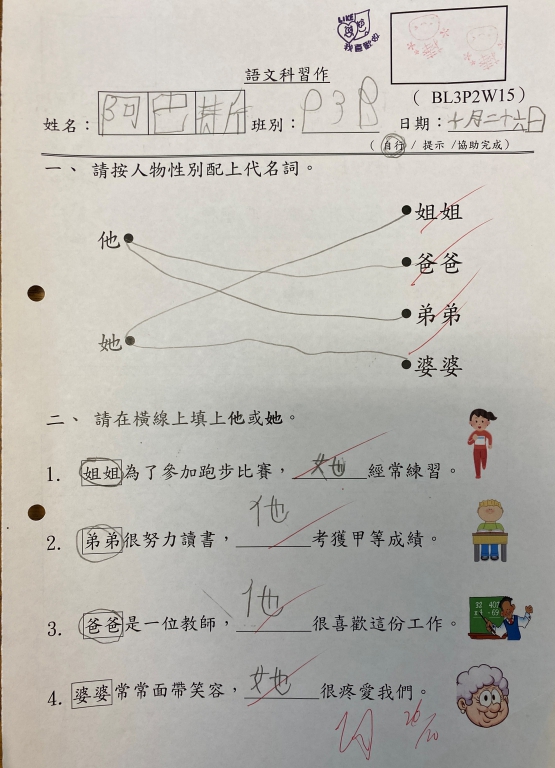 LIKE
我喜歡你
語文科習作
( BL3P2W15 )
姓名： 阿巴 班別： P3B 日期： 十月二十六日
( 自行 / 提示 / 協助完成 )
一、 請按人物性別配上代名詞。
他 姐姐
爸爸
弟弟
她 婆婆
二、 請在橫線上填上他或她。
1. 姐姐為了參加跑步比賽， 她 經常練習。
2. 弟弟很努力讀書， 他 考獲甲等成績。
3. 爸爸是一位教師， 他 很喜歡這份工作。
4. 婆婆常常面帶笑容， 她 很疼愛我們。
26/10